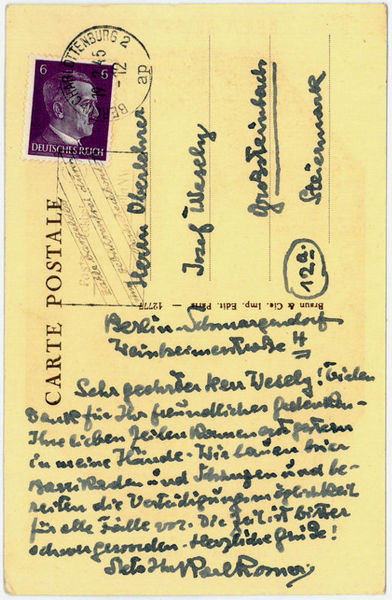 CHARLOTTENBURG 2
45
- 12
ap
6 6
DEUTSCHES REICH
CARTE POSTALE
Herrn Oberlehrer
Josef Wesely
Grossteinbach
Steiermark
12a.
Braun & Cie. Imp. Edit. Paris - 12777
Berlin-Schmargendorf
Weinheimerstraße 4
Sehr geehrter Herr Wesely! Vielen
Dank für Ihr freundliches Gedenken.
Ihre lieben Zeilen kamen gestern
in meine Hände. Wir bauen hier
Barrikaden und Schanzen und be-
reiten die Verteidigungsmöglichkeit
für alle Fälle vor. Die Zeit ist bitter
schwer geworden. Herzliche Grüße!
Stets Ihr Karl